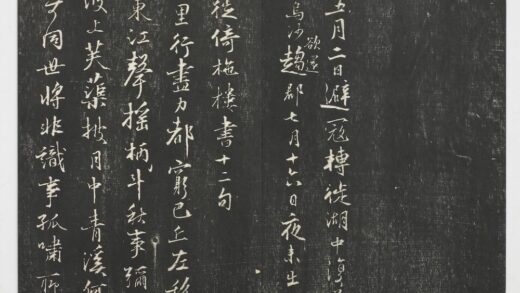 五月二日避冦轉徙湖中
烏沙欲逆趨郡七月十六日夜未
徙倚柂樓書十二句
里行盡力都窮已上左
東江聲搖柄斗秋事彌
波上芙蕖披月中青溪
同世將非識事孤嘯